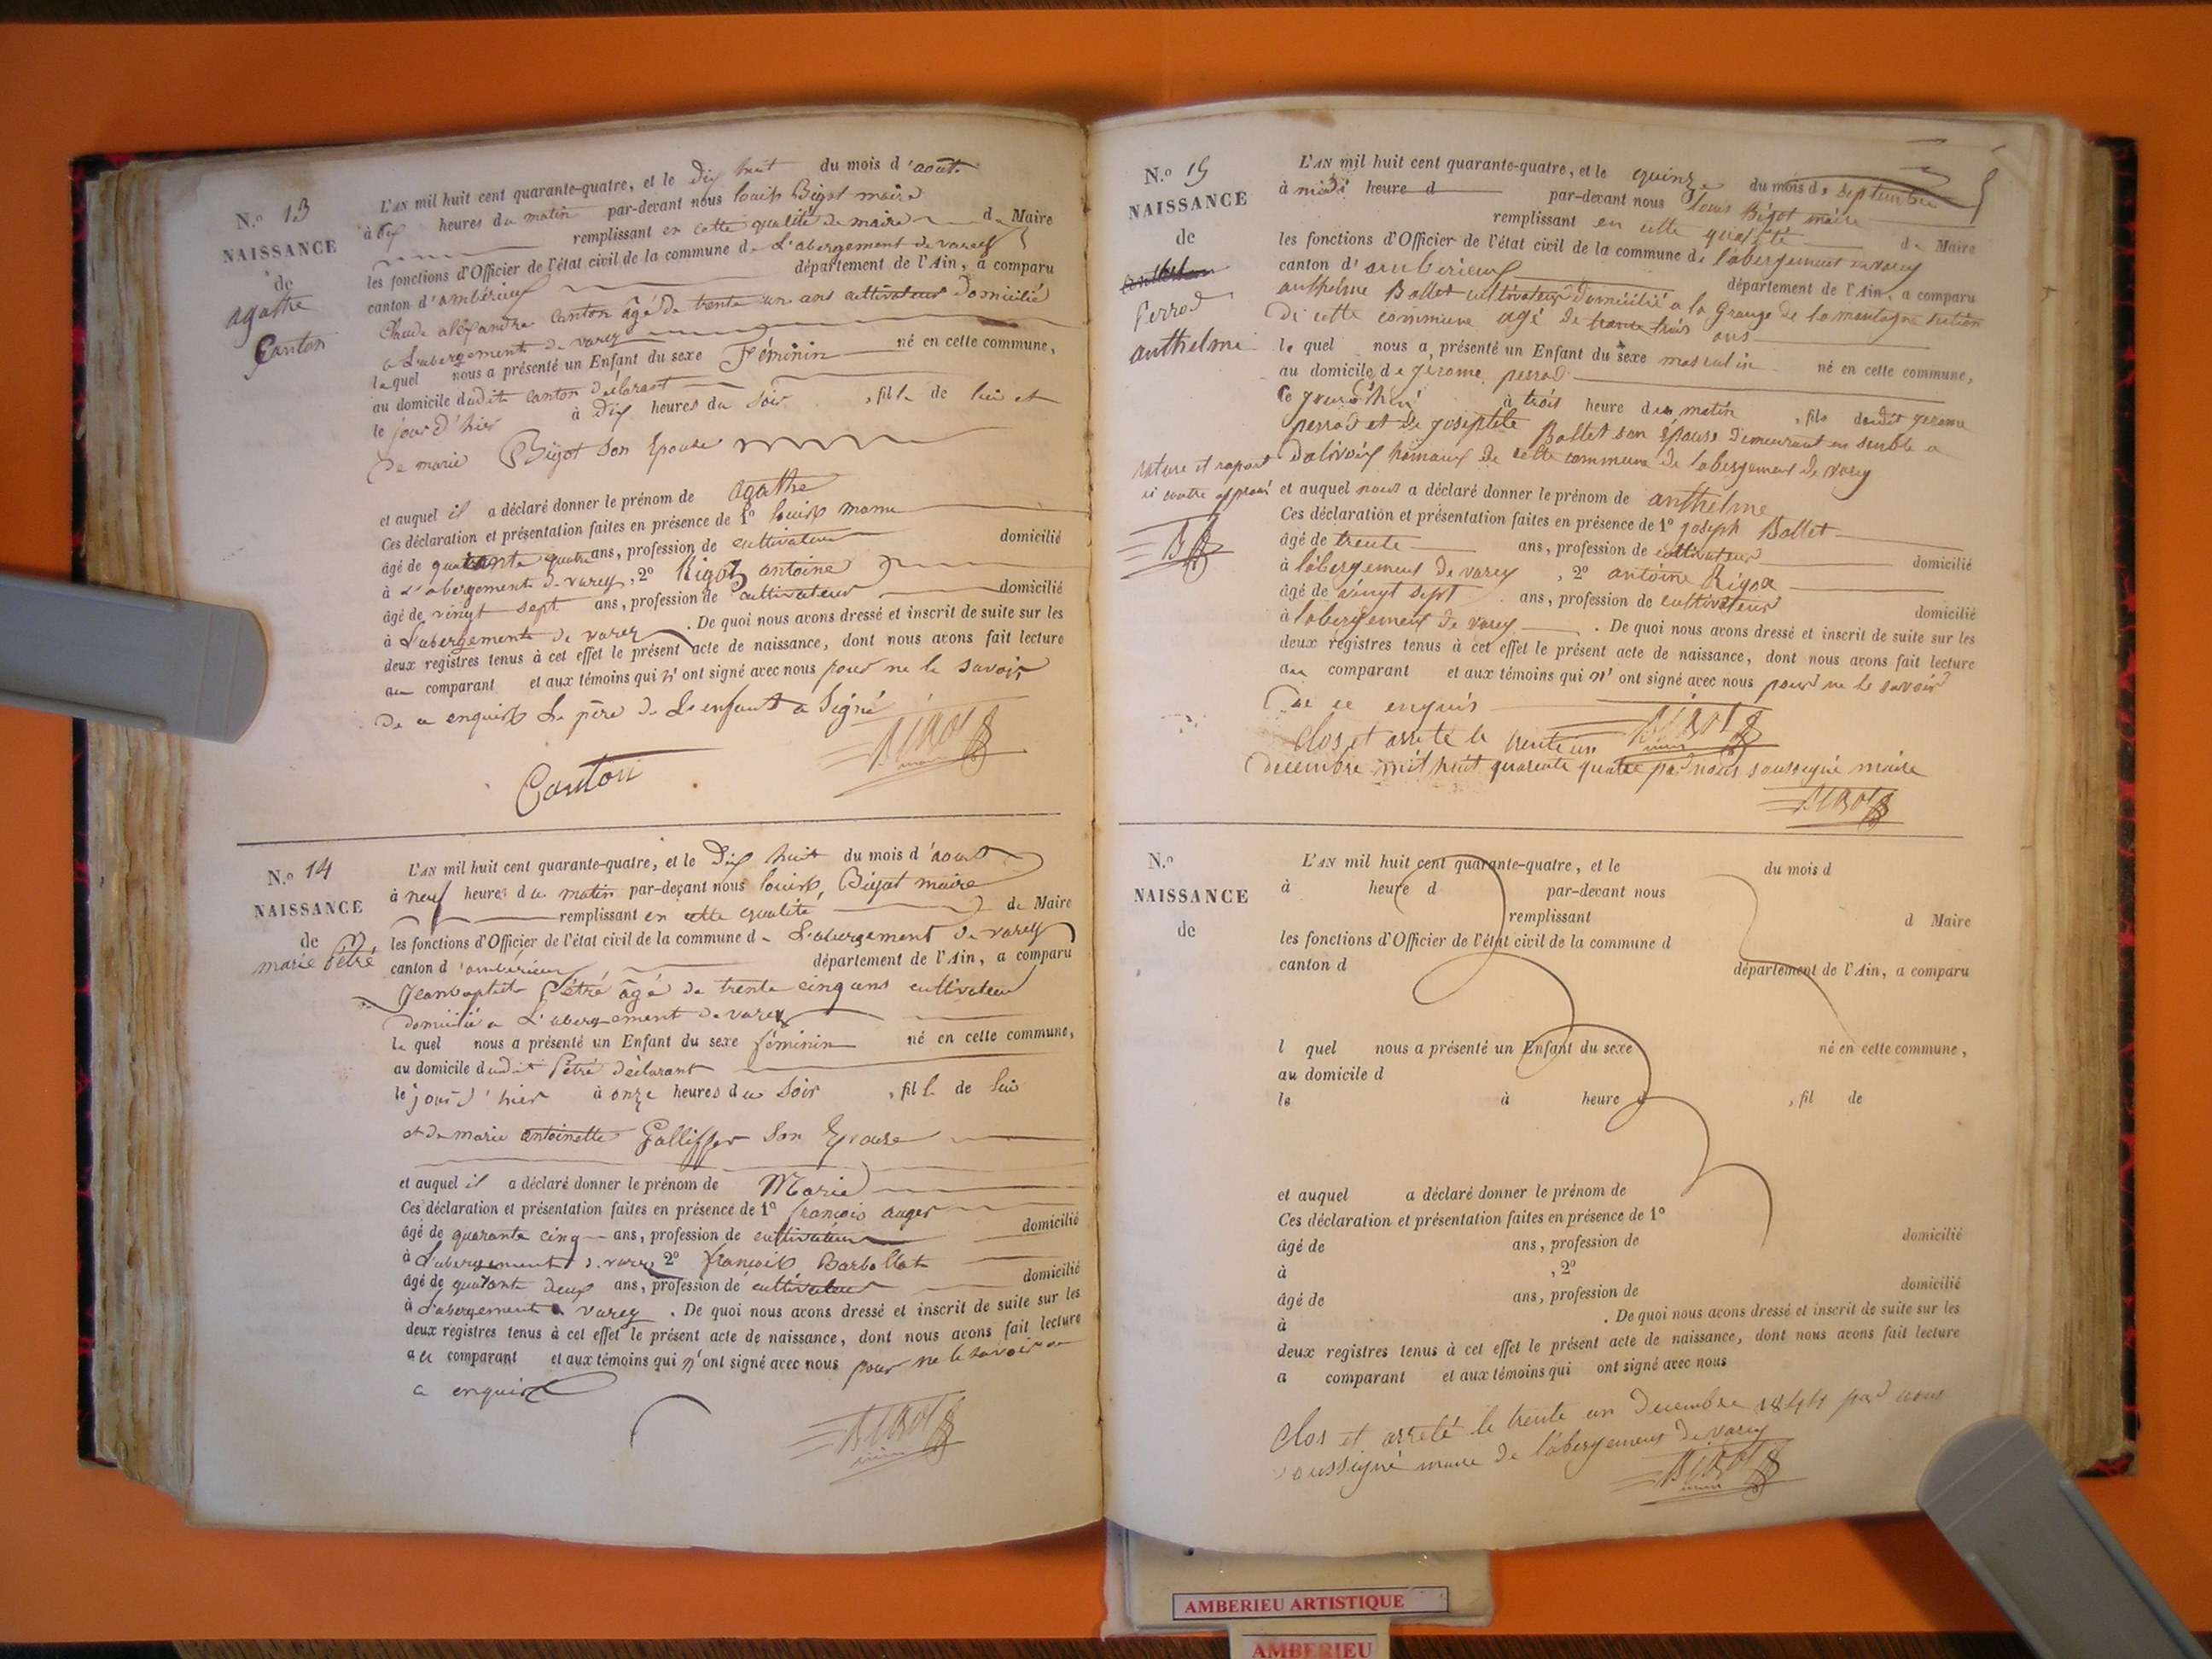 N.o 13
NAISSANCE
de
agathe
Canton
L'AN mil huit cent quarante-quatre, et le dix huit du mois d'août
à dix heures du matin par-devant nous louis Bigot maire
remplissant en cette qualité de maire de Maire
les fonctions d'Officier de l'état civil de la commune de L'abergement de varey
canton d'ambérieux département de l'Ain, a comparu
Claude aléxandre Canton âgé de trente un ans cultivateur domicilié
a L'abergement de varey
lequel nous a présenté un Enfant du sexe Féminin né en cette commune,
au domicile dudit Canton déclarant
le jour d'hier à dix heures du soir, fille de lui et
de marie Bigot son Epouse
et auquel il a déclaré donner le prénom de agathe
Ces déclaration et présentation faites en présence de 1o louis
âgé de quarante quatre ans, profession de cultivateur domicilié
à L'abergement de varey, 2o Rigot antoine
âgé de vingt sept ans, profession de cultivateur domicilié
à L'abergement de varey. De quoi nous avons dressé et inscrit de suite sur les
deux registres tenus à cet effet le présent acte de naissance, dont nous avons fait lecture
au comparant et aux témoins qui n'ont signé avec nous pour ne le savoir
de a enquis Le père de L'enfant a signé
Canton
BIGOT
maire
N.o 14
NAISSANCE
de
marie Pétré
L'AN mil huit cent quarante-quatre, et le dix huit du mois d'aout
à neuf heures du matin par-devant nous louis Bigot maire
remplissant en cette qualité de Maire
les fonctions d'Officier de l'état civil de la commune de L'abergement de varey
canton d'ambérieux département de l'Ain, a comparu
Jeanbaptiste Pétré âgé de trente cinq ans cultivateur
domicilié a L'abergement de varey
lequel nous a présenté un Enfant du sexe féminin né en cette commune,
au domicile dudit Pétré déclarant
le jour d'hier à onze heures du soir, fille de lui
et de marie antoinette son Epouse
et auquel il a déclaré donner le prénom de Marie
Ces déclaration et présentation faites en présence de 1o françois auger
âgé de quarante cinq ans, profession de cultivateur domicilié
à L'abergement d. varey 2o françois Barbollat
âgé de quarante deux ans, profession de cultivateur domicilié
à L'abergement varey. De quoi nous avons dressé et inscrit de suite sur les
deux registres tenus à cet effet le présent acte de naissance, dont nous avons fait lecture
au comparant et aux témoins qui n'ont signé avec nous pour ne le savoir
a enquis
BIGOT
N.o 15
NAISSANCE
de
Perrod
anthelme
L'AN mil huit cent quarante-quatre, et le quinze du mois de septembre
à midi heure d par-devant nous Louis Bigot maire
remplissant en cette qualité de Maire
les fonctions d'Officier de l'état civil de la commune de l'abergement de varey
canton d'amberieux département de l'Ain, a comparu
anthelme Ballet cultivateur domicilié a la Grange de la montagne section
de cette commune agé de trente trois ans
lequel nous a présenté un Enfant du sexe masculin né en cette commune,
au domicile de jerome perrod
le à trois heure du matin, fils dudit jerome
perrod et de josephte Ballet son épouse demeurant en semble a
hamaux de cette commune de l'abergement de varey
rature et raport
ci contre approuvé
et auquel nous a déclaré donner le prénom de anthelme
Ces déclaration et présentation faites en présence de 1o joseph Ballet
âgé de trente ans, profession de cultivateur domicilié
à l'abergement de varey, 2o antoine Rigot
âgé de vingt sept ans, profession de cultivateur domicilié
à l'abergement de varey. De quoi nous avons dressé et inscrit de suite sur les
deux registres tenus à cet effet le présent acte de naissance, dont nous avons fait lecture
au comparant et aux témoins qui n'ont signé avec nous pour ne le savoir
de ce enquis
BIGOT
Clos et arreté le trente un
decembre mil huit quarente quatre par nous soussigné maire
BIGOT
N.o
NAISSANCE
de
L'AN mil huit cent quarante-quatre, et le du mois d
à heure d par-devant nous
remplissant d Maire
les fonctions d'Officier de l'état civil de la commune d
canton d département de l'Ain, a comparu
l quel nous a présenté un Enfant du sexe né en cette commune,
au domicile d
le à heure d, fil de
et auquel a déclaré donner le prénom de
Ces déclaration et présentation faites en présence de 1o
âgé de ans, profession de domicilié
à , 2o
âgé de ans, profession de domicilié
à . De quoi nous avons dressé et inscrit de suite sur les
deux registres tenus à cet effet le présent acte de naissance, dont nous avons fait lecture
a comparant et aux témoins qui ont signé avec nous
Clos et arreté le trente un decembre 1844 par nous
soussigné maire de l'abergement de varey
BIGOT
maire
AMBERIEU ARTISTIQUE
AMBERIEU